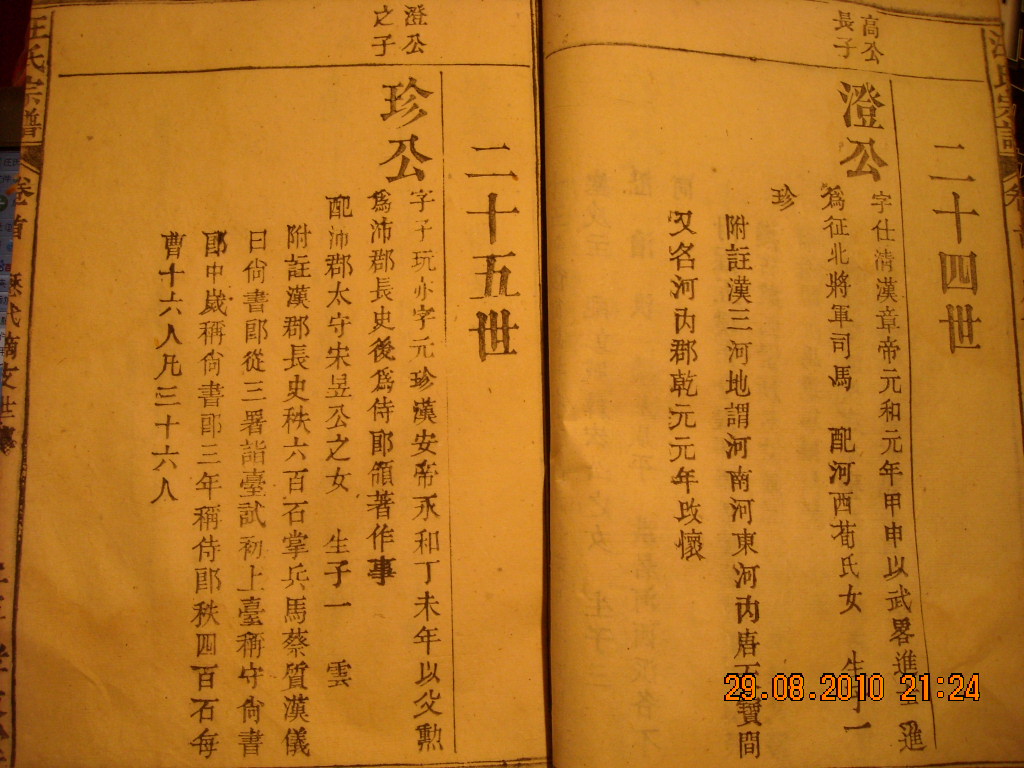 高公
長子
二十四世
澄公
字仕清漢章帝元和元年甲申以武畧進士進
爲征北將軍司馬 配河西荀氏女 生子一
珍
附註漢三河地謂河南河東河內唐天寶間
又名河內郡乾元元年改懷
澄公
之子
二十五世
珍公
字子玩亦字元珍漢安帝永和丁未年以父勲
爲沛郡長史後爲侍郎領著作事
配沛郡太守宋昱公之女 生子一 雲
附註漢郡長史秩六百石掌兵馬蔡質漢儀
曰尙書郎從三署詣臺試初上臺稱守尙書
郎中歲稱尙書郎三年稱侍郎秩四百石每
曹十六人凡三十六人
汪氏宗譜 卷首 歷代
29.08.2010 21:24